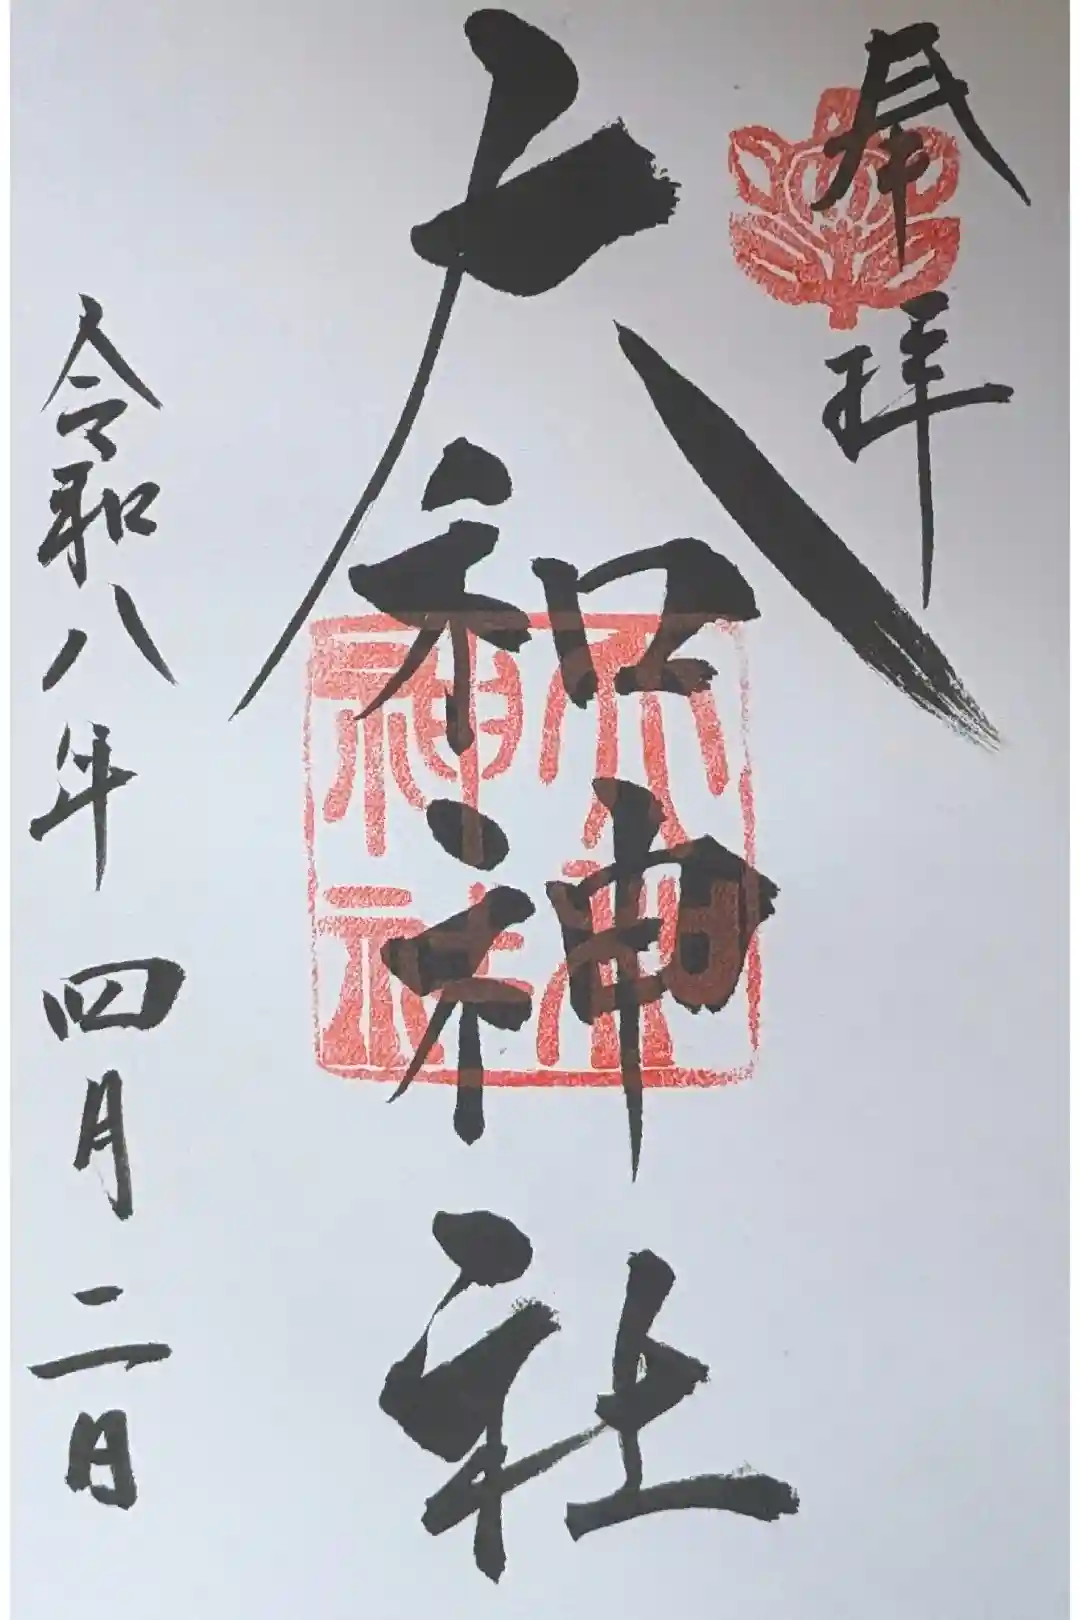 奉拝
大和神社
大和
神社
令和八年四月二日